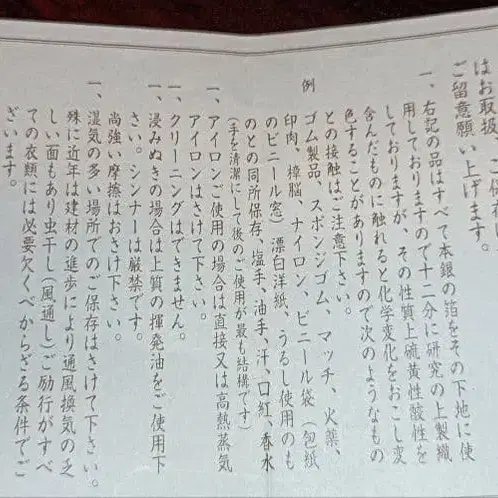 はお取扱、ご保存に
ご留意願い上げます。
一、右記の品はすべて本銀の箔をその下地に使
用しておりますので十二分に研究の上製織
しておりますが、その性質上硫黄性酸性を
含んだものに触れると化学変化をおこし変
色することがありますので次のようなもの
との接触はご注意下さい。
例
ゴム製品、スポンジゴム、マッチ、火薬、
印肉、樟脳、ナイロン、ビニール袋(包紙
のビニール窓)漂白洋紙、うるし使用のも
のとの同所保存、塩手、油手、汗、口紅、香水
(手を清潔にして後のご使用が最も結構です)
一、アイロンご使用の場合は直接又は高熱蒸気
アイロンはさけて下さい。
一、クリーニングはできません。
一、浸みぬきの場合は上質の揮発油をご使用下
さい。シンナーは厳禁です。
尚強い摩擦はおさけ下さい。
一、湿気の多い場所でのご保存はさけて下さい。
殊に近年は建材の進歩により通風換気の乏
しい面もあり虫干し(風通し)ご励行がすべ
ての衣類には必要欠くべからざる条件でご
ざいます。